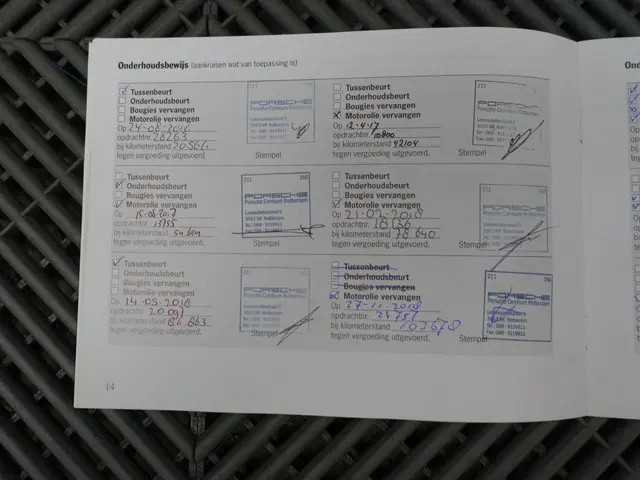 Onderhoudsbewijs (aankruisen wat van toepassing is)
Tussenbeurt
Onderhoudsbeurt
Bougies vervangen
Motorolie vervangen
Op 24-08-2016
opdrachtnr. 28263
bij kilometerstand 20561
tegen vergoeding uitgevoerd.
211
PORSCHE
Stempel
Tussenbeurt
Onderhoudsbeurt
Bougies vervangen
Motorolie vervangen
Op 12-4-17
opdrachtnr. 10800
bij kilometerstand 42104
tegen vergoeding uitgevoerd.
211
PORSCHE
Porsche Centrum Rotterdam
Stempel
Tussenbeurt
Onderhoudsbeurt
Bougies vervangen
Motorolie vervangen
Op
opdrachtnr. 13755
bij kilometerstand
tegen vergoeding uitgevoerd.
211
PORSCHE
Porsche Centrum Rotterdam
Stempel
Tussenbeurt
Onderhoudsbeurt
Bougies vervangen
Motorolie vervangen
Op 21-02-2018
opdrachtnr. 18136
bij kilometerstand 78 640
tegen vergoeding uitgevoerd.
211
PORSCHE
Porsche Centrum Rotterdam
Stempel
Tussenbeurt
Onderhoudsbeurt
Bougies vervangen
Motorolie vervangen
Op 14-05-2018
opdrachtnr.
bij kilometerstand 86 863
tegen vergoeding uitgevoerd.
211
PORSCHE
Porsche Centrum Rotterdam
Stempel
Tussenbeurt
Onderhoudsbeurt
Bougies vervangen
Motorolie vervangen
Op 27-11-2018
opdrachtnr.
bij kilometerstand
tegen vergoeding uitgevoerd.
211
PORSCHE
Porsche Centrum Rotterdam
Stempel
14